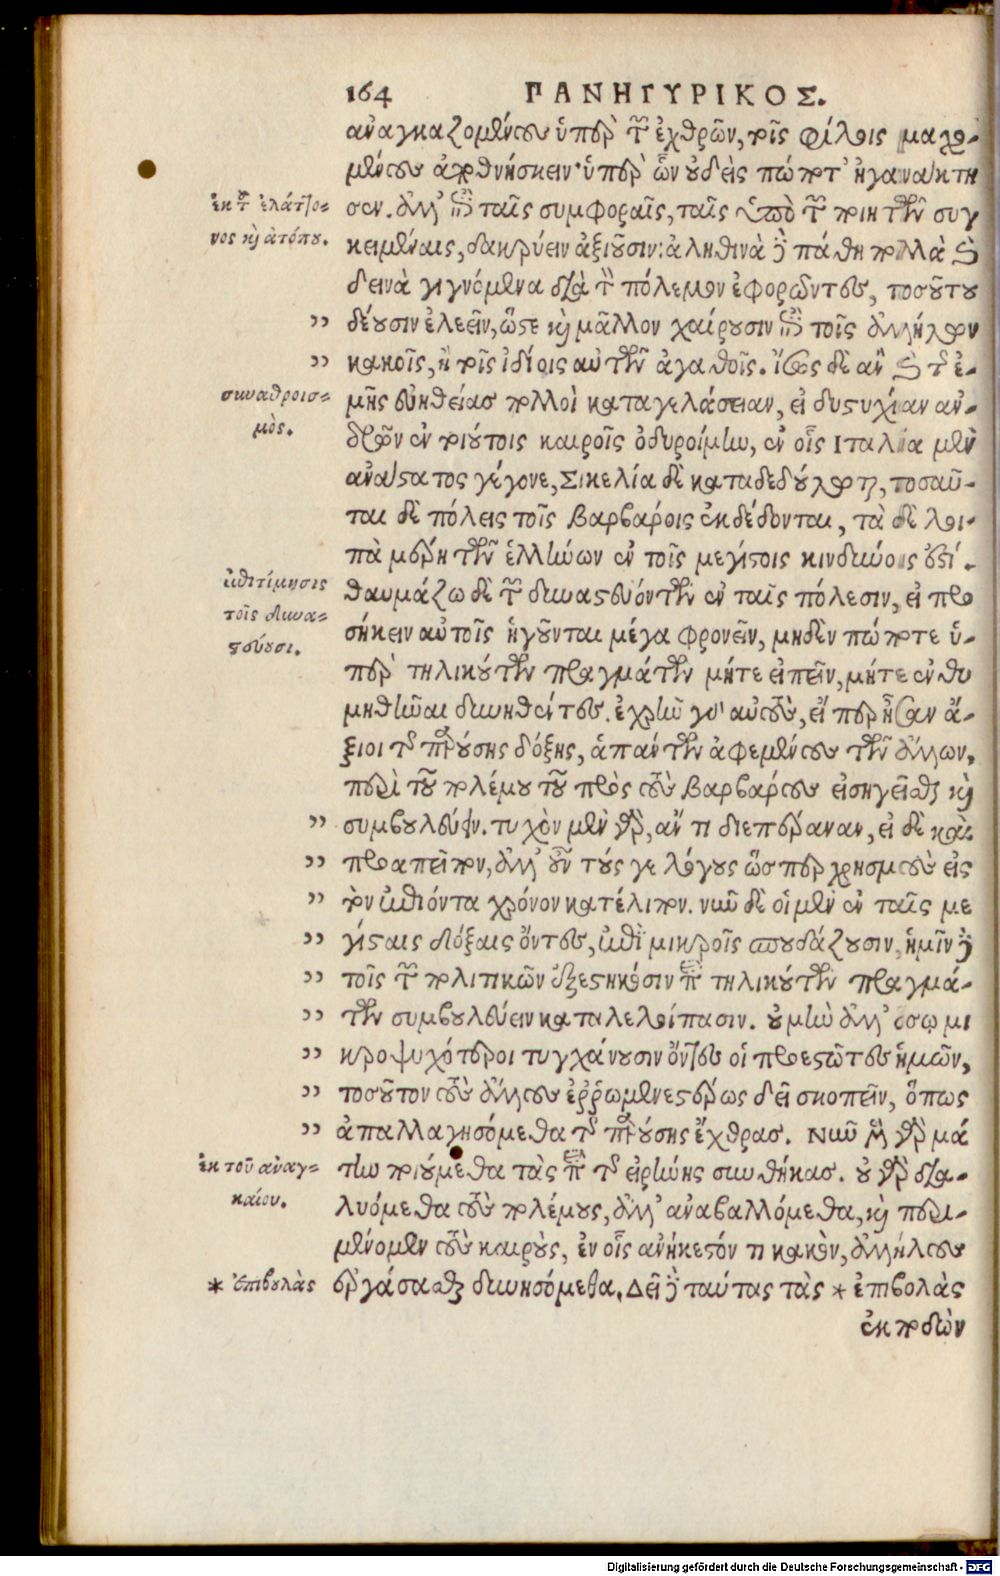 164 ΠΑΝΗΓΥΡΙΚΟΣ.
ἀναγκαζομένους ὑπὲρ τῶν ἐχθρῶν, τοῖς φίλοις μαχο-
μένους ἀποθνήσκειν· ὑπὲρ ὧν οὐδεὶς πώποτ' ἠγανάκτη
ἐκ τοῦ ἐλάττο-
νος καὶ ἀτόπου.
σεν. ἀλλ' ἐπὶ ταῖς συμφοραῖς, ταῖς ὑπὸ τῶν ποιητῶν συγ
κειμέναις, δακρύειν ἀξιοῦσιν: ἀληθινὰ δὲ πάθη πολλὰ καὶ
δεινὰ γιγνόμενα διὰ τὸν πόλεμον ἐφορῶντες, τοσούτου
" δέουσιν ἐλεεῖν, ὥστε καὶ μᾶλλον χαίρουσιν ἐπὶ τοῖς ἀλλήλων
" κακοῖς, ἢ τοῖς ἰδίοις αὐτῶν ἀγαθοῖς. ἴσως δὲ ἂν καὶ τῆς ἐ-
συναθροισ-
μὸς.
μῆς εὐηθείας πολλοὶ καταγελάσειαν, εἰ δυστυχίαν ἀν-
δρῶν ἐν τοιούτοις καιροῖς ὀδυροίμην, ἐν οἷς Ἰταλία μὲν
ἀνάστατος γέγονε, Σικελία δὲ καταδεδούλωται, τοσαῦ-
ται δὲ πόλεις τοῖς βαρβάροις ἐκδέδονται, τὰ δὲ λοι-
πὰ μέρη τῶν ἑλλήνων ἐν τοῖς μεγίστοις κινδύνοις ἐστί.
ἐπιτίμησις
τοῖς δυνα-
στεύουσι.
θαυμάζω δὲ τῶν δυναστευόντων ἐν ταῖς πόλεσιν, εἰ προ
σήκειν αὐτοῖς ἡγοῦνται μέγα φρονεῖν, μηδὲν πώποτε ὑ-
πὲρ τηλικούτων πραγμάτων μήτε εἰπεῖν, μήτε ἐνθυ
μηθῆναι δυνηθέντες. ἐχρῆν γὰρ αὐτοὺς, εἴπερ ἦσαν ἄ-
ξιοι τῆς παρούσης δόξης, ἁπάντων ἀφεμένους τῶν ἄλλων,
περὶ τοῦ πολέμου τοῦ πρὸς τοὺς βαρβάρους εἰσηγεῖσθαι καὶ
" συμβουλεύειν. τυχὸν μὲν γὰρ, ἄν τι διεπέραναν, εἰ δὲ καὶ
" προαπεῖπον, ἀλλ' οὖν τούς γε λόγους ὥσπερ χρησμοὺς εἰς
" τὸν ἐπιόντα χρόνον κατέλιπον. νῦν δὲ οἱ μὲν ἐν ταῖς με
" γίσταις δόξαις ὄντες, ἐπὶ μικροῖς σπουδάζουσιν, ἡμῖν δὲ
" τοῖς τῶν πολιτικῶν ἐξεστηκόσιν περὶ τηλικούτων πραγμά-
" των συμβουλεύειν καταλελοίπασιν. οὐ μὴν ἀλλ' ὅσῳ μι
" κροψυχότεροι τυγχάνουσιν ὄντες οἱ προεστῶτες ἡμῶν,
" τοσοῦτον τοὺς ἄλλους ἐῤῥωμενεστέρως δεῖ σκοπεῖν, ὅπως
" ἀπαλλαγησόμεθα τῆς παρούσης ἔχθρας. Νῦν μὲν γὰρ μά
ἐκ τοῦ ἀναγ-
καίου.
την ποιούμεθα τὰς περὶ τῆς εἰρήνης συνθήκας. οὐ γὰρ δια-
λυόμεθα τοὺς πολέμους, ἀλλ' ἀναβαλλόμεθα, καὶ περι-
μένομεν τοὺς καιροὺς, ἐν οἷς ἀνήκεστόν τι κακὸν, ἀλλήλους
* ἐπιβουλὰς
ἐργάσασθαι δυνησόμεθα. Δεῖ δὲ ταύτας τὰς * ἐπιβολὰς
ἐκποδὼν
Digitalisierung gefördert durch die Deutsche Forschungsgemeinschaft - DFG